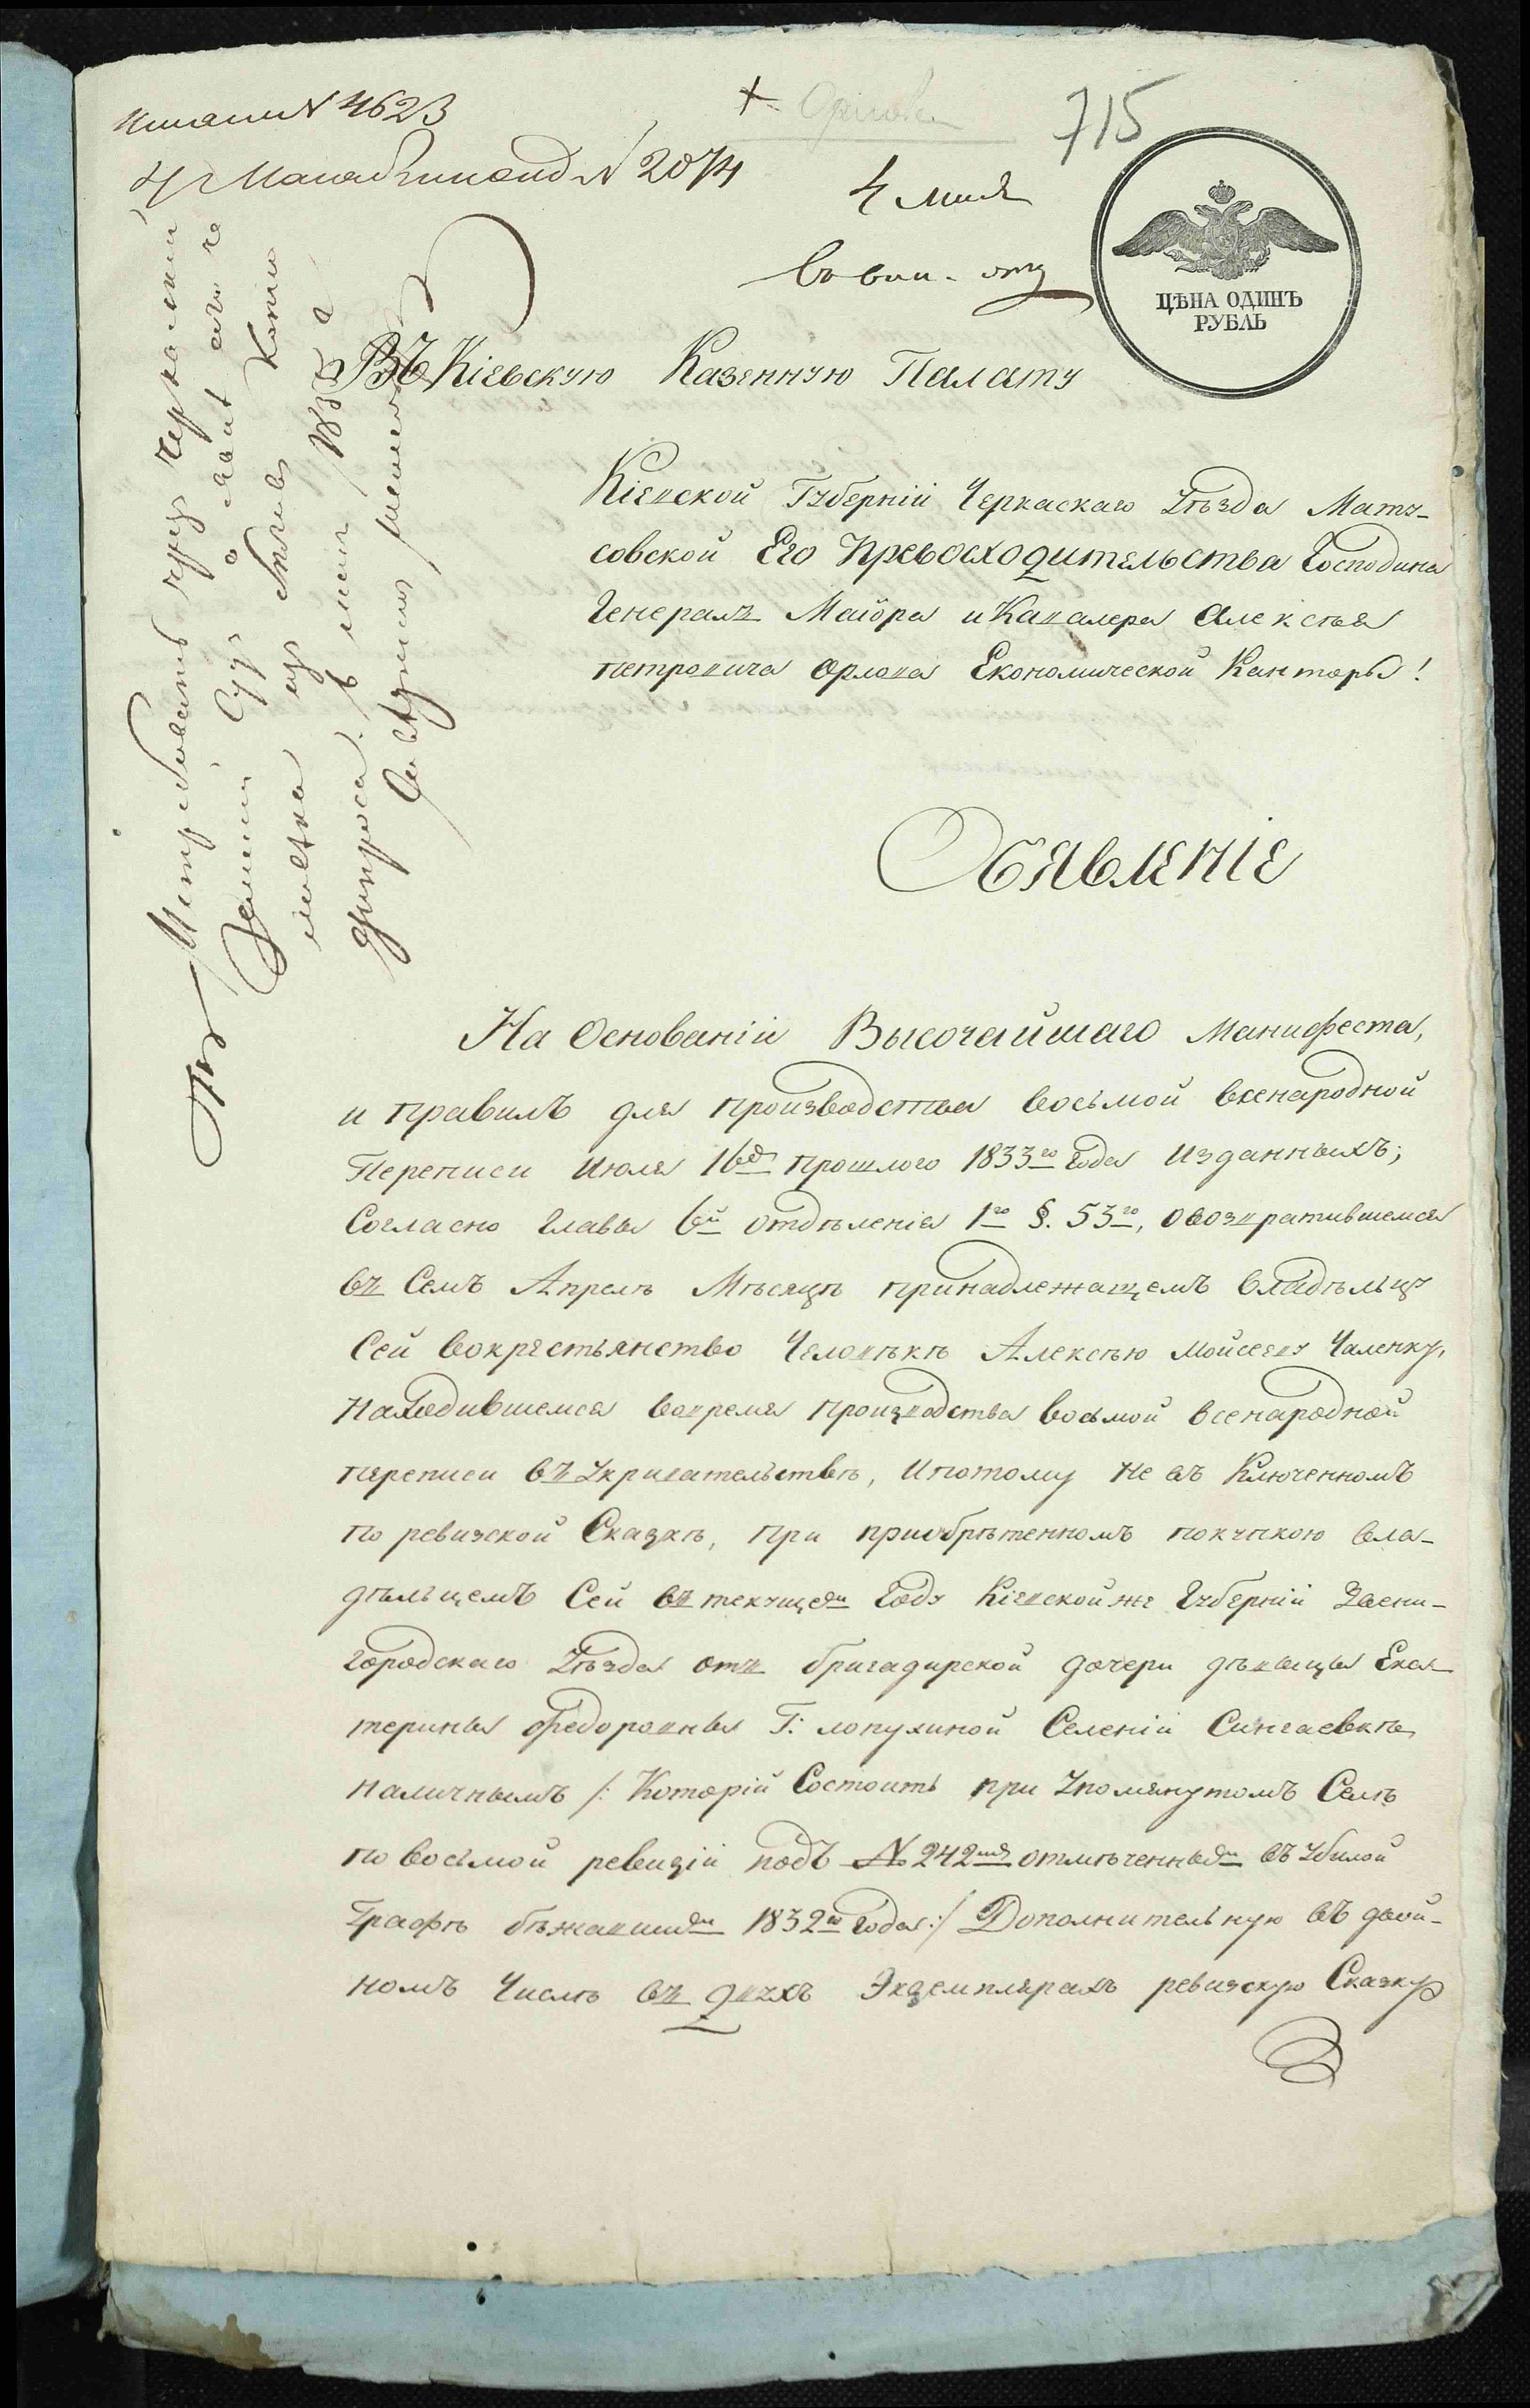 № 4623
№ 2074
Орлова
715
4 мая
ЦѢНА ОДИНЪ
РУБЛЬ
Въ Кіевскую Казенную Палату
Кіевской Губерніи Черкаскаго Уѣзда Мату-
совской Его Превосходительства Господина
Генералъ Маіора и Кавалера Алексѣя
петровича Орлова Економической Канторы!
Объявленіе
На Основаніи Высочайшаго Манифеста,
и правилъ для производства восьмой всенародной
Переписи Июля 16го прошлого 1833го Года Изданныхъ;
Согласно Главы 6й отдѣленія 1го §. 53го, овозвратившемся
въ Семъ Апрелѣ Мѣсяцѣ принадлежащемъ владѣльцу
Сей вокрестьянство Человѣкѣ Алексѣю Мойсееву Чаленку,
находившемся вовремя производства восьмой всенародной
переписи въ Укривательствѣ, Ипотому не въ Ключенномъ
по ревизской Сказкѣ, при приобрѣтенномъ покупкою вла-
дѣльцемъ Сей въ текущемъ Году Кіевской же Губерніи Звени-
городскаго Уѣзда отъ бригадирской дочери дѣвицы Ека-
терины Федоровны Г: лопухиной Селеніи Сингаевкѣ
наличнымъ /: Которій Состоитъ при Упомянутомъ Селѣ
по восьмой ревизіи подъ № 242мъ отмѣченнымъ въ Убилой
Графѣ бѣжавшимъ 1832го Года:/ Дополнительную въ двой-
номъ Числѣ въ двухъ Экземплярахъ ревизскую Сказку
Истребовать чрез Черкаский
Земский Суд